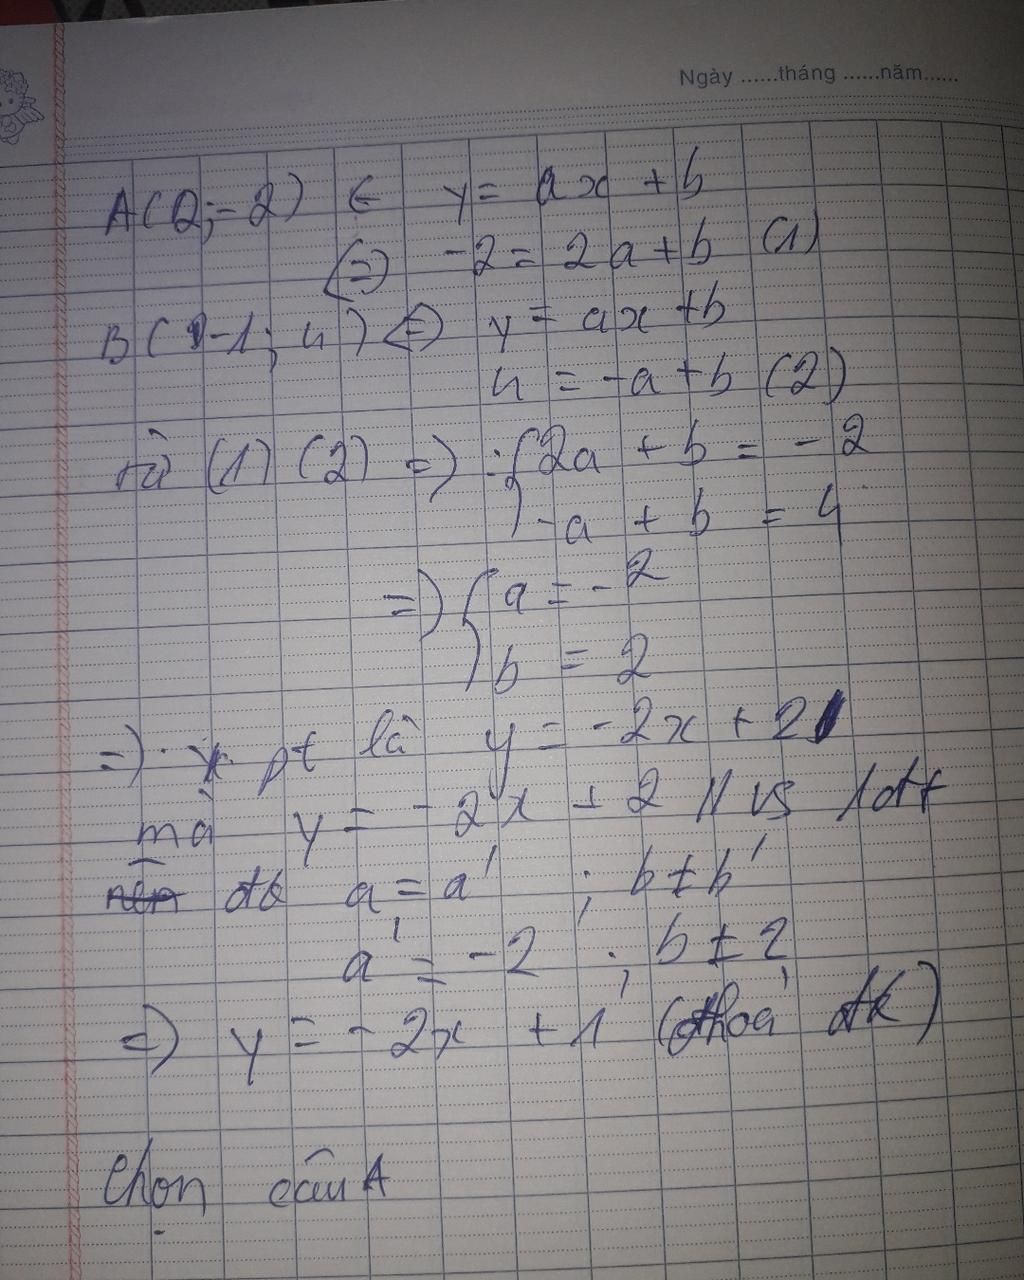 Ngày ......tháng ......năm......
A(2;-2) ∈ y = ax + b
(=) -2 = 2a + b (1)
B(-1; 4) (=) y = ax + b
4 = -a + b (2)
từ (1) (2) =) : { 2a + b = -2
-a + b = 4
=) { a = -2
b = 2
=) pt là y = -2x + 2
mà y = -2x + 2 // vs 1 đt
nên đk a = a' ; b ≠ b'
a' = -2 ; b ≠ 2
=) y = -2x + 1 (thoả đk)
Chọn câu A